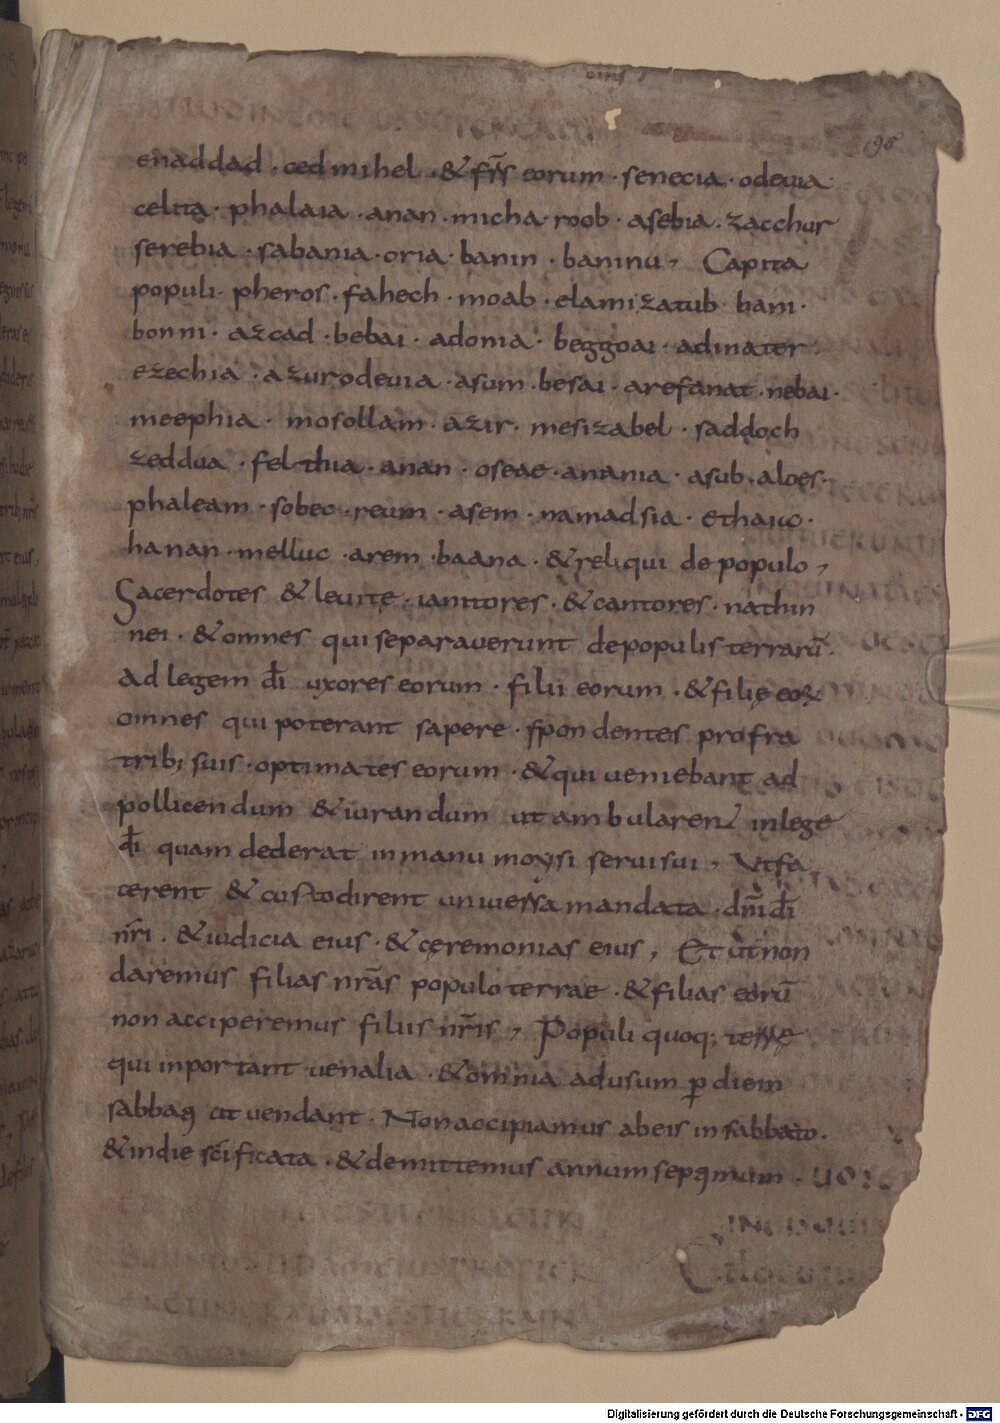 95
enaddad · cedmihel · & frīs eorum · senecia · odeuia
celita · phalaia · anan · micha · roob · asebia · zacchur
serebia · sabania · oria · banin · baninu , Capita
populi · pheros · fahech · moab · elamizatub · bani ·
bonni · azcad · bebai · adonia · beggoai · adinater
ezechia · azurodeuia · asum · besai · arefanat · nebai ·
meephia · mosollam · azir · mesizabel · saddoch
zeddua · felthua · anan · oseae · anania · asub · aloes ·
phaleam · sobec · reum · asem · namadsia · ethaiuc ·
hanan · melluc · arem · baana · & reliqui de populo ,
Sacerdotes & leuitę · ianitores · & cantores · nathin
nei · & omnes qui separauerunt de populis terrarū ·
ad legem dī uxores eorum · filii eorum · & filię eoꝝ
omnes qui poterant sapere · spondentes pro fra
trib; suis · optimates eorum · & qui ueniebant ad
pollicendum & iurandum ut ambularent in lege
dī quam dederat in manu moysi serui sui , Ut fa
cerent & custodirent uniuersa mandata dn̄i dī
nr̄i · & iudicia eius · & cęremonias eius , Et ut non
daremus filias nr̄as populo terrae · & filias eorū
non acciperemus filiis nr̄is , Populi quoq; terrę
qui inportant uenalia · & omnia ad usum ꝑ diem
sabbati ut uendant · Non accipiamus ab eis in sabbato ·
& in die sc̄ificata · & demittemus annum septimum ·